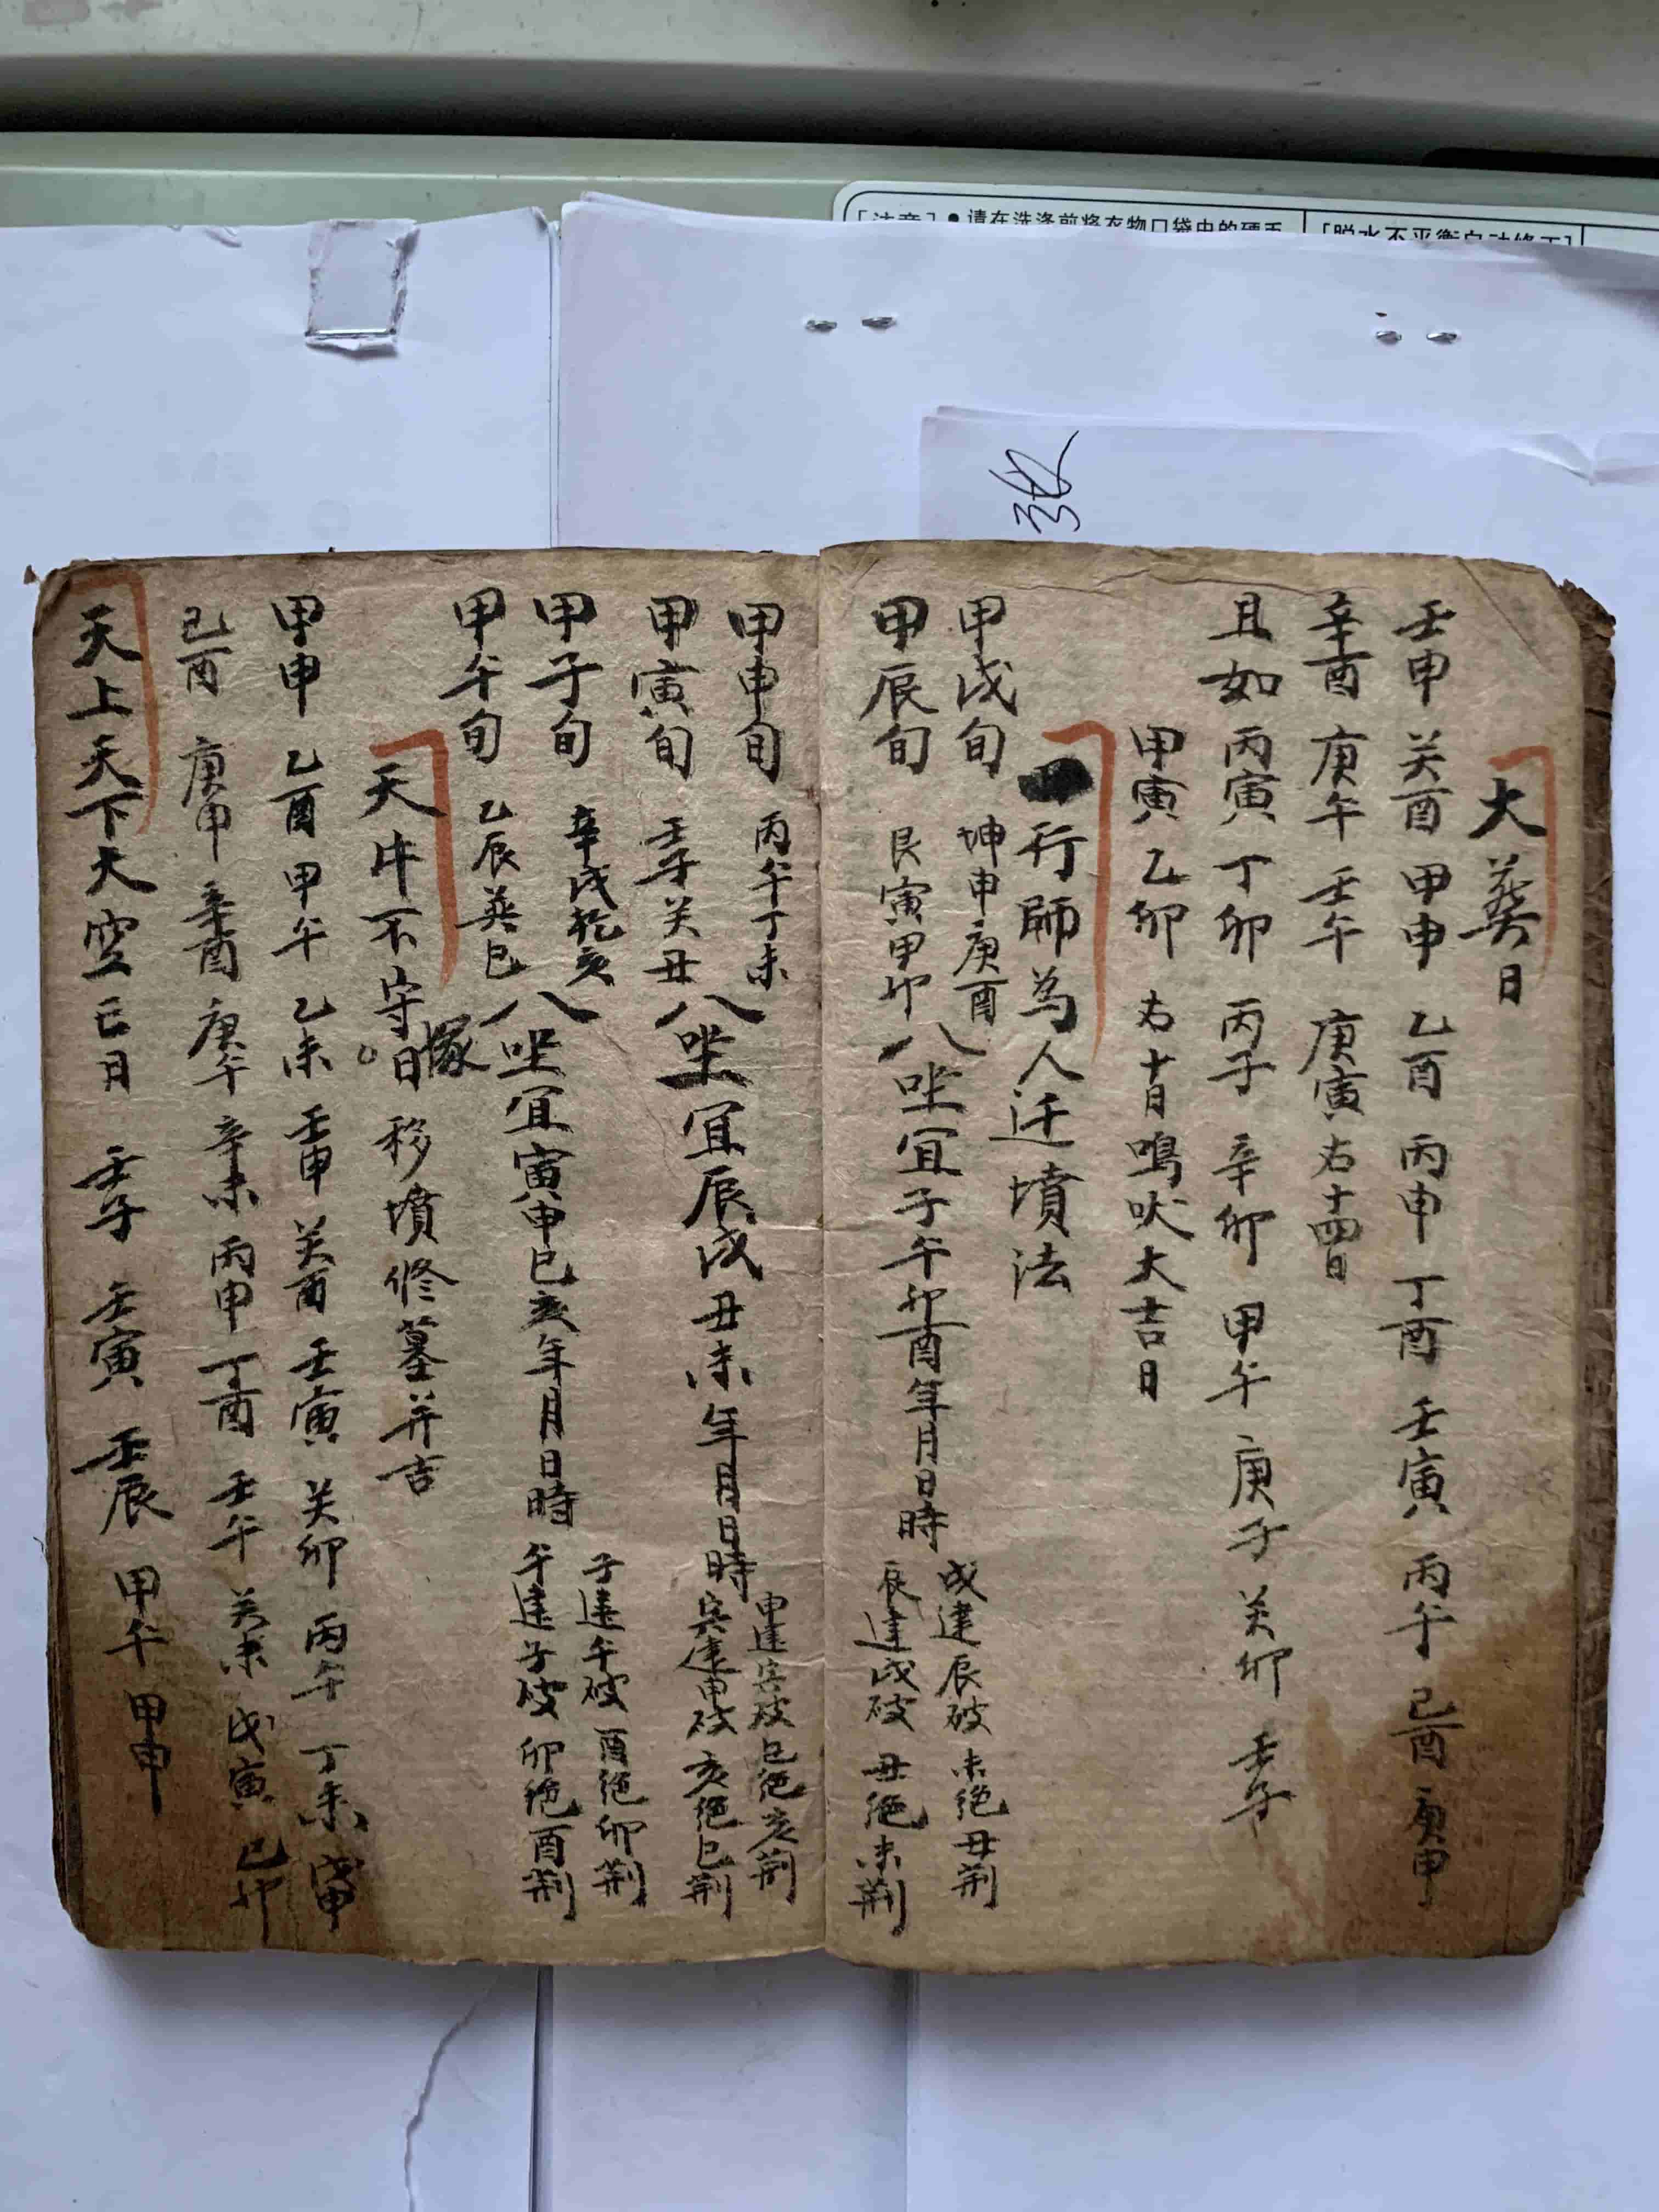 请在洗涤前将衣物口袋中的硬币
大葬日
壬申 癸酉 甲申 乙酉 丙申 丁酉 壬寅 丙午 己酉 庚申
辛酉 庚午 壬午 庚寅 右十四日
且如 丙寅 丁卯 丙子 辛卯 甲午 庚子 癸卯 壬子
甲寅 乙卯 右十日鳴吠大吉日
一行師為人迁墳法
甲戌旬 坤申庚酉
甲辰旬 艮寅甲卯
八坐宜子午卯酉年月日時
戌建辰破 未绝丑荆
辰建戌破 丑绝未荆
甲申旬 丙午丁未
甲寅旬 壬子癸丑
八坐宜辰戌丑未年月日時
申建寅破巳绝亥荆
寅建申破亥绝巳荆
甲子旬 辛戌乾亥
甲午旬 乙辰巽巳
八坐宜寅申巳亥年月日時
子建午破 酉绝卯荆
午建子破 卯绝酉荆
天牛不守塚日 移墳修墓并吉
甲申 乙酉 甲午 乙未 壬申 癸酉 壬寅 癸卯 丙午 丁未 戊申
己酉 庚申 辛酉 庚午 辛未 丙申 丁酉 壬午 癸未 戊寅 己卯
天上天下大空亡日 壬子 壬寅 壬辰 甲午 甲申